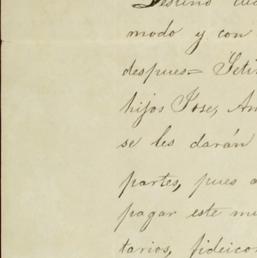 Destino cua
modo y con
despues= Seti
hijos Jose, An
se les darán
partes, pues a
pagar este mu
tarios, fideicom